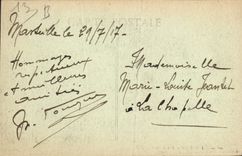 13 B
CARTE POSTALE
Marseille le 29/7/17.
Hommages
respectueux
et meilleures
amitiés
Mademoiselle
Marie-Louise
à La Chapelle